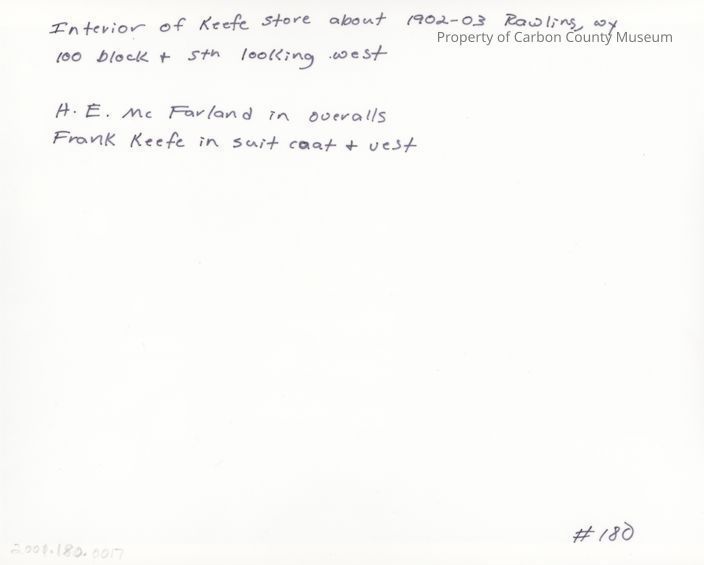 Interior of Keefe store about 1902-03 Rawlins, wy
Property of Carbon County Museum
100 block + 5th looking west
H. E. Mc Farland in overalls
Frank Keefe in suit coat + vest
#180
.180.0017